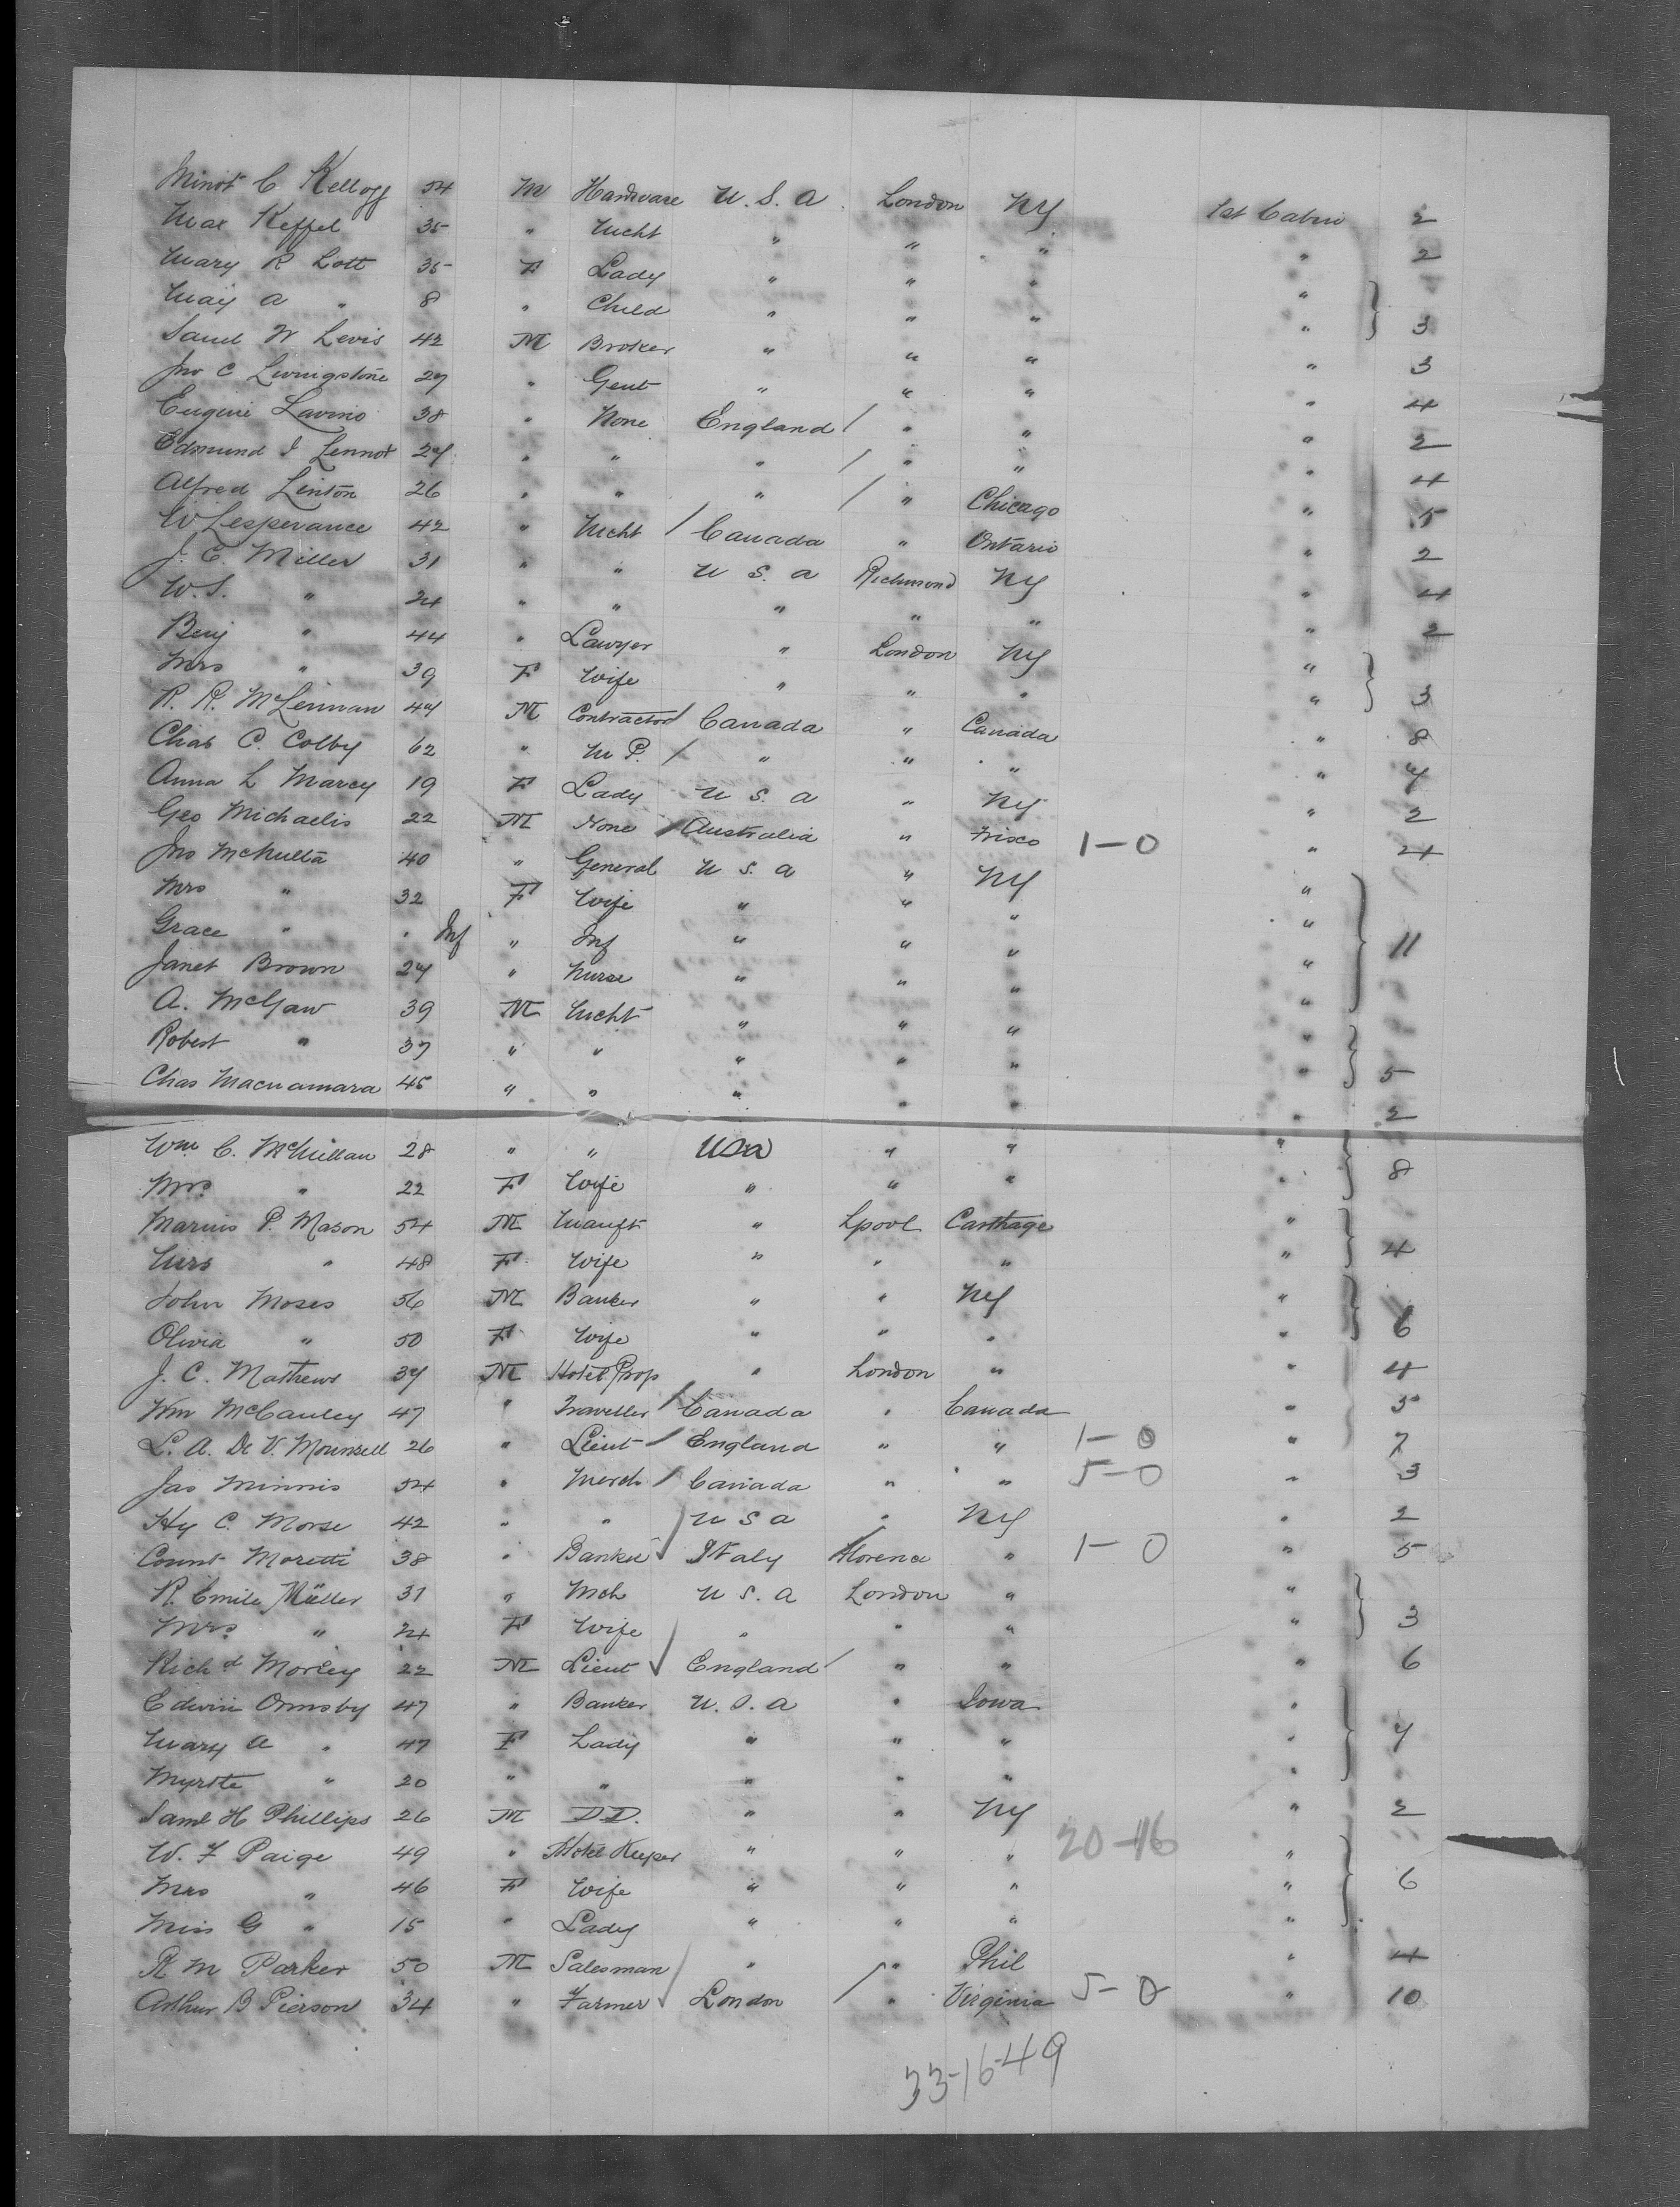 Minot C Kellogg 54 M Hardware U.S.A. London NY 1st Cabin 2
Max Keffel 35 " Mcht " " " " 2
Mary R Lott 35 F Lady " " " "
May A " 8 " Child " " " " 3
Saml W Levis 42 M Broker " " " " 3
Jno C Livingstone 27 " Gent " " " " 4
Eugene Lavino 38 " None England / " " " 2
Edmund I Lennox 27 " " " / " " " 4
Alfred Linton 26 " " " / " Chicago " 5
W Lesperance 42 " Mcht / Canada " Ontario " 2
J. C. Miller 31 " " U S. A Richmond NY " 4
W.S. " 24 " " " " " " 2
Benj " 44 " Lawyer " London NY "
Mrs " 39 F Wife " " " " 3
R. R. McLennan 47 M Contractor / Canada " Canada " 8
Chas C. Colby 62 " M P. / " " " " 7
Anna L Marcy 19 F Lady U S. A " NY " 2
Geo Michaelis 22 M None / Australia " Frisco 1-0 " 4
Jno McNulta 40 " General U S. A " NY "
Mrs " 32 F Wife " " " "
Grace " " Inf " Inf " " " " 11
Janet Brown 27 " Nurse " " " "
A. McGaw 39 M Mcht " " " "
Robert " 37 " " " " " " 5
Chas Macnamara 45 " " " " " " 2
Wm C. McMillan 28 " " USA " " "
Mrs " 22 F Wife " " " " 8
Marius P. Mason 54 M Manft " Lpool Carthage "
Mrs " 48 F Wife " " " " 4
John Moses 56 M Banker " " NY "
Olivia " 50 F Wife " " " " 6
J. C. Mathews 37 M Hotel Prop " London " " 4
Wm McCauley 47 " Traveller / Canada " Canada " 3
L. A. De V. Mounsell 26 " Lieut / England " " 1-0 " 7
Jas Minnis 54 " Merch / Canada " " 5-0 " 3
Hy C. Morse 42 " " U S A " NY " 2
Count Moretti 38 " Banker Italy Florence " 1-0 " 5
R. Emile Müller 31 " Mch U S. A London " "
Mrs " 24 F Wife " " " " 3
Richd Morley 22 M Lieut England / " " " 6
Edwin Ormsby 47 " Banker U. S. A " Iowa "
Mary A " 47 F Lady " " " " 7
Myrtle " 20 " " " " " "
Saml H Phillips 26 M D D. " " NY " 2
W. F Paige 49 " Hotel Keeper " " " 20-16 "
Mrs " 46 F Wife " " " " 6
Miss G " 15 " Lady " " " "
R M Parker 50 M Salesman " " Phil " 4
Arthur B Pierson 34 " Farmer London / " Virginia 5-0 " 10
33-16-49